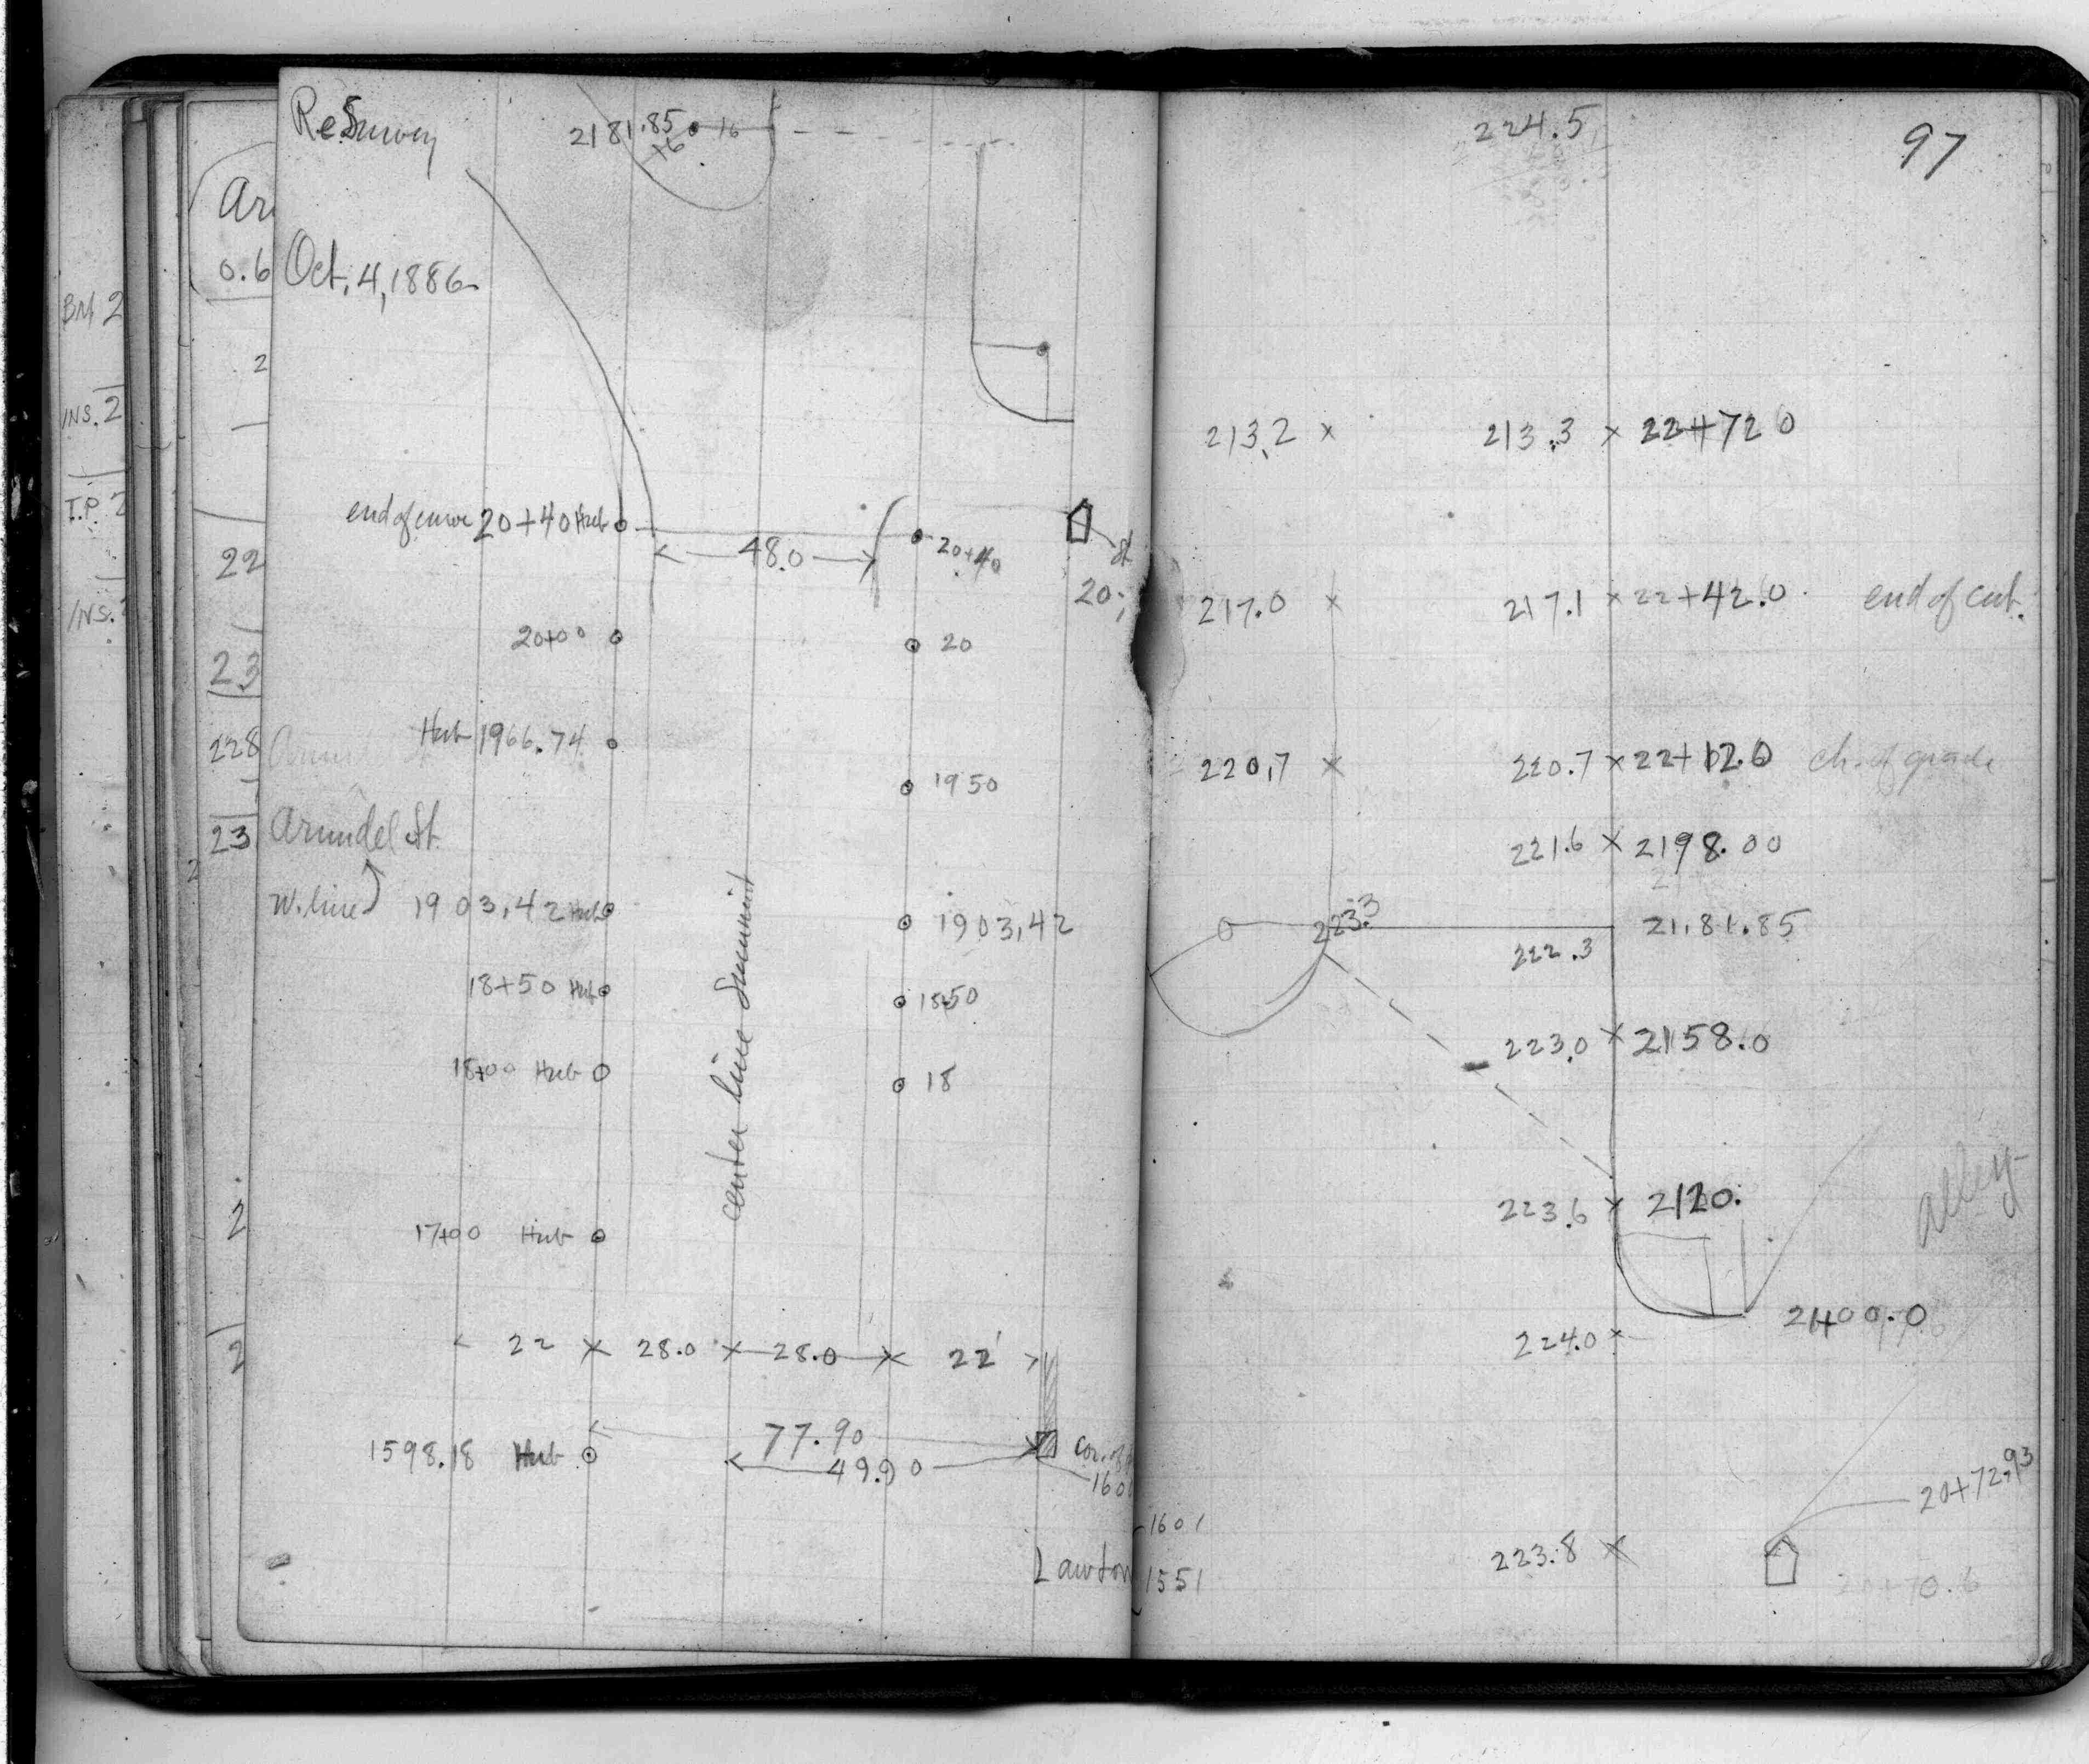 ReSurvey
2181.85 16
+6
Oct. 4, 1886
end of curve 20+40 Hub
48.0
20+40
st
20
20+00
20
Hub 1966.74
1950
Arundel St.
W. line 1903.42 Hub
1903.42
18+50 Hub
1850
18+00 Hub
18
center line Summit
17+00 Hub
22 × 28.0 × 28.0 × 22'
77.90
1598.18 Hub
49.90
Cor. of
160
Lawton
1601
1551
Ar
0.6
BM 2
2
INS. 2
T.P. 2
22
INS.
23
228
23
2
2
224.5
97
213.2 ×
213.3 × 22+72.0
217.0 ×
217.1 × 22+42.0 end of cut.
220.7 ×
220.7 × 22+12.0 ch. of grade
221.6 × 2198.00
223.3
21.81.85
222.3
223.0 × 2158.0
223.6 × 2120.
alley
21+00.0
224.0 ×
20+72.93
223.8 ×